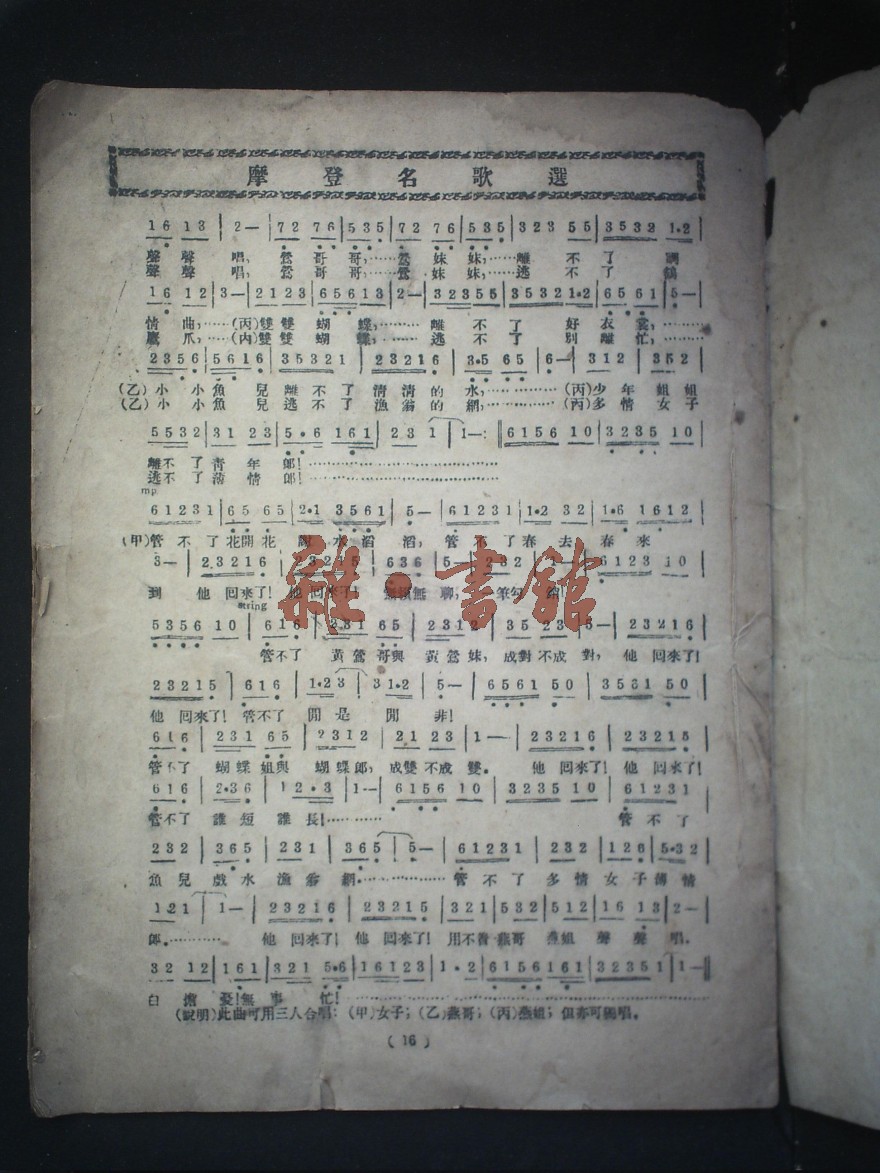 摩登名歌選
16 13 | 2— | 72 76 | 535 | 72 76 | 535 | 323 55 | 3532 1·2 |
聲聲唱,鶯哥哥,……鶯妹妹,……離不了
聲聲唱,鶯哥哥,……鶯妹妹,……逃不了鶴
16 12 | 3— | 2123 | 65613 | 2— | 32355 | 35321·2 | 6561 | 5— |
情曲,……(丙)雙雙蝴蝶,……離不了好衣裳,……
鷹爪,……(丙)雙雙蝴蝶,……逃不了別離忙,……
2356 | 5616 | 35321 | 23216 | 3·5 65 | 6— | 312 | 352 |
(乙)小小魚兒離不了清清的水,……(丙)少年姐姐
(乙)小小魚兒逃不了漁翁的網,……(丙)多情女子
5532 | 31 23 | 5·6 161 | 23 1 | 1—:‖ 6156 10 | 3235 10 |
離不了青年郎!……
逃不了薄情郎!……
mp
61231 | 65 65 | 2·1 3561 | 5— | 61231 | 1·2 32 | 1·6 1612 |
(甲)管不了花開花 水滔滔,管不了春去春來
3— | 23216 | 23215 | 636 | 5— | 232 | 1— | 6123 10 |
到 他回來了!他回來了! 無聊,
string
5356 10 | 616 | 231 65 | 2312 | 35 23 | 5— | 23216 |
管不了黃鶯哥與黃鶯妹,成對不成對,他回來了!
23215 | 616 | 1·23 | 31·2 | 5— | 6561 50 | 3561 50 |
他回來了!管不了閒是閒非!
616 | 231 65 | 2312 | 21 23 | 1— | 23216 | 23215 |
管不了蝴蝶姐與蝴蝶郎,成雙不成雙。他回來了!他回來了!
616 | 2·36 | 12·3 | 1— | 6156 10 | 3235 10 | 61231 |
管不了誰短誰長!……管不了
232 | 365 | 231 | 365 | 5— | 61231 | 232 | 126 | 5·32 |
魚兒戲水漁翁網……管不了多情女子薄情
121 | 1— | 23216 | 23215 | 321 | 532 | 512 | 16 13 | 2— |
郎。……他回來了!他回來了!用不着燕哥燕姐聲聲唱。
32 12 | 161 | 321 5·6 | 16123 | 1·2 | 6156161 | 32351 | 1—‖
白擔憂!無事忙!……
(說明)此曲可用三人合唱:(甲)女子;(乙)燕哥;(丙)燕姐;但亦可獨唱。
(16)
雜·書館